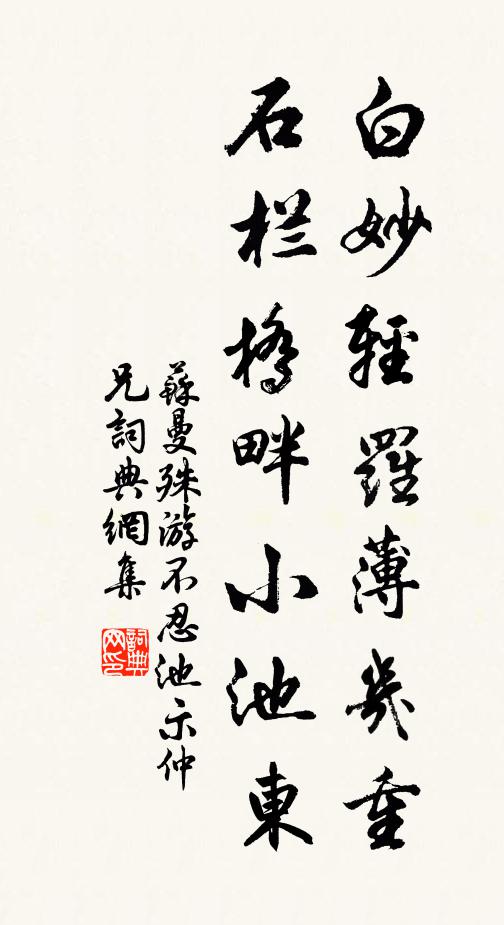 白妙輕羅薄幾重
石栏橋畔小池東
蘇曼殊游不忍池示仲
兄詞典網集
詞典
网印